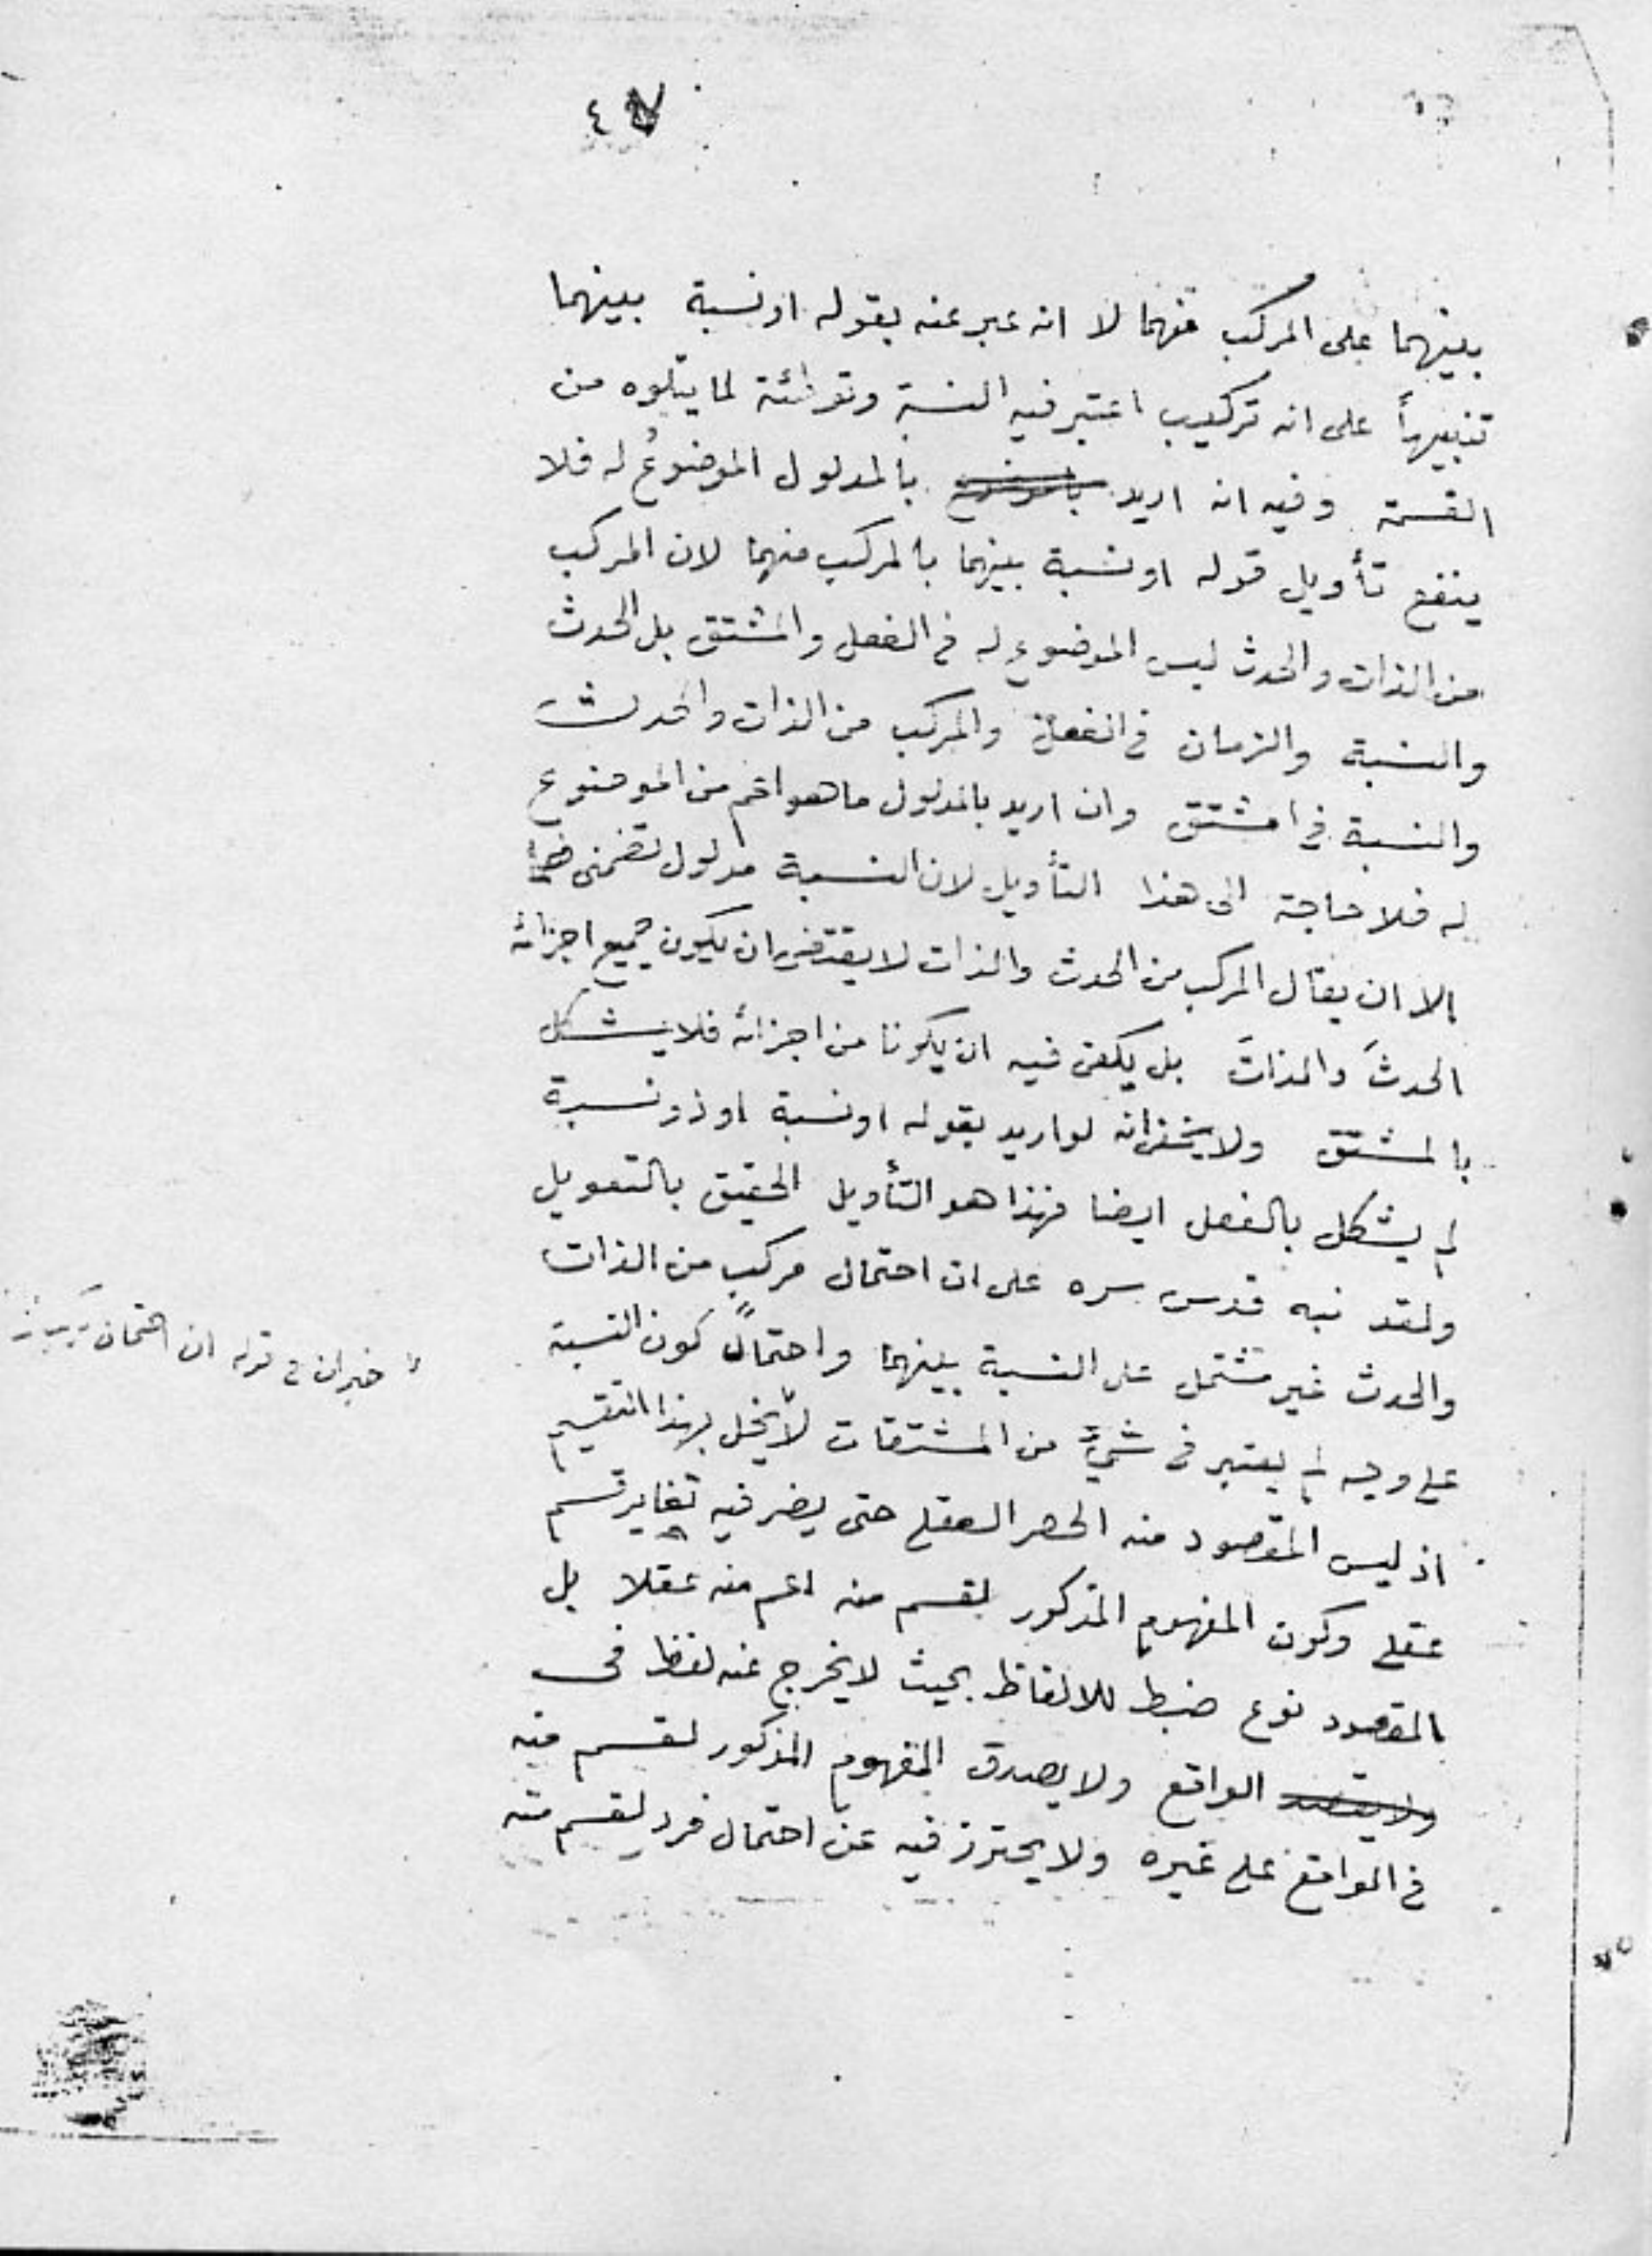 بينهما على المركب منهما لا انه عبر عنه بقوله او نسبة بينهما
تنبيهاً على انه تركيب اعتبر فيه النسبة وتوطئة لما يتلوه من
القسمة وفيه انه اريد بالمدلول الموضوعُ له فلا
ينفع تأويل قوله او نسبة بينهما بالمركب منهما لان المركب
من الذات والحدث ليس الموضوع له فى الفعل والمشتق بل الحدث
والنسبة والزمان فى الفعل والمركب من الذات والحدث
والنسبة فى المشتق وان اريد بالمدلول ما هو اعم من الموضوع
له فلا حاجة الى هذا التأويل لان النسبة مدلول تضمنى
الا ان يقال المركب من الحدث والذات لا يقتضى ان يكون جميع اجزائه
الحدثَ والذاتَ بل يكفى فيه ان يكونا من اجزائه فلا يشكل
بالمشتق ولا يخفى انه لو اريد بقوله او نسبة او ذو نسبة
لم يشكل بالفعل ايضا فهذا هو التأويل الحقيق بالتعويل
ولقد نبه قدس سره على ان احتمال مركب من الذات
والحدث غير مشتمل على النسبة بينهما واحتمال كون النسبة
على وجه لم يعتبر فى شئ من المشتقات لا يخل بهذا التقسيم
اذ ليس المقصود منه الحصر العقلى حتى يضر فيه تغاير قسم
عقلى وكون المفهوم المذكور لقسم منه اعم منه عقلا بل
المقصود نوع ضبط للالفاظ بحيث لا يخرج عنه لفظ فى
الواقع ولا يصدق المفهوم المذكور لقسم منه
فى الواقع على غيره ولا يحترز فيه عن احتمال فرد لقسم منه
خبر ان فى قوله ان احتمال